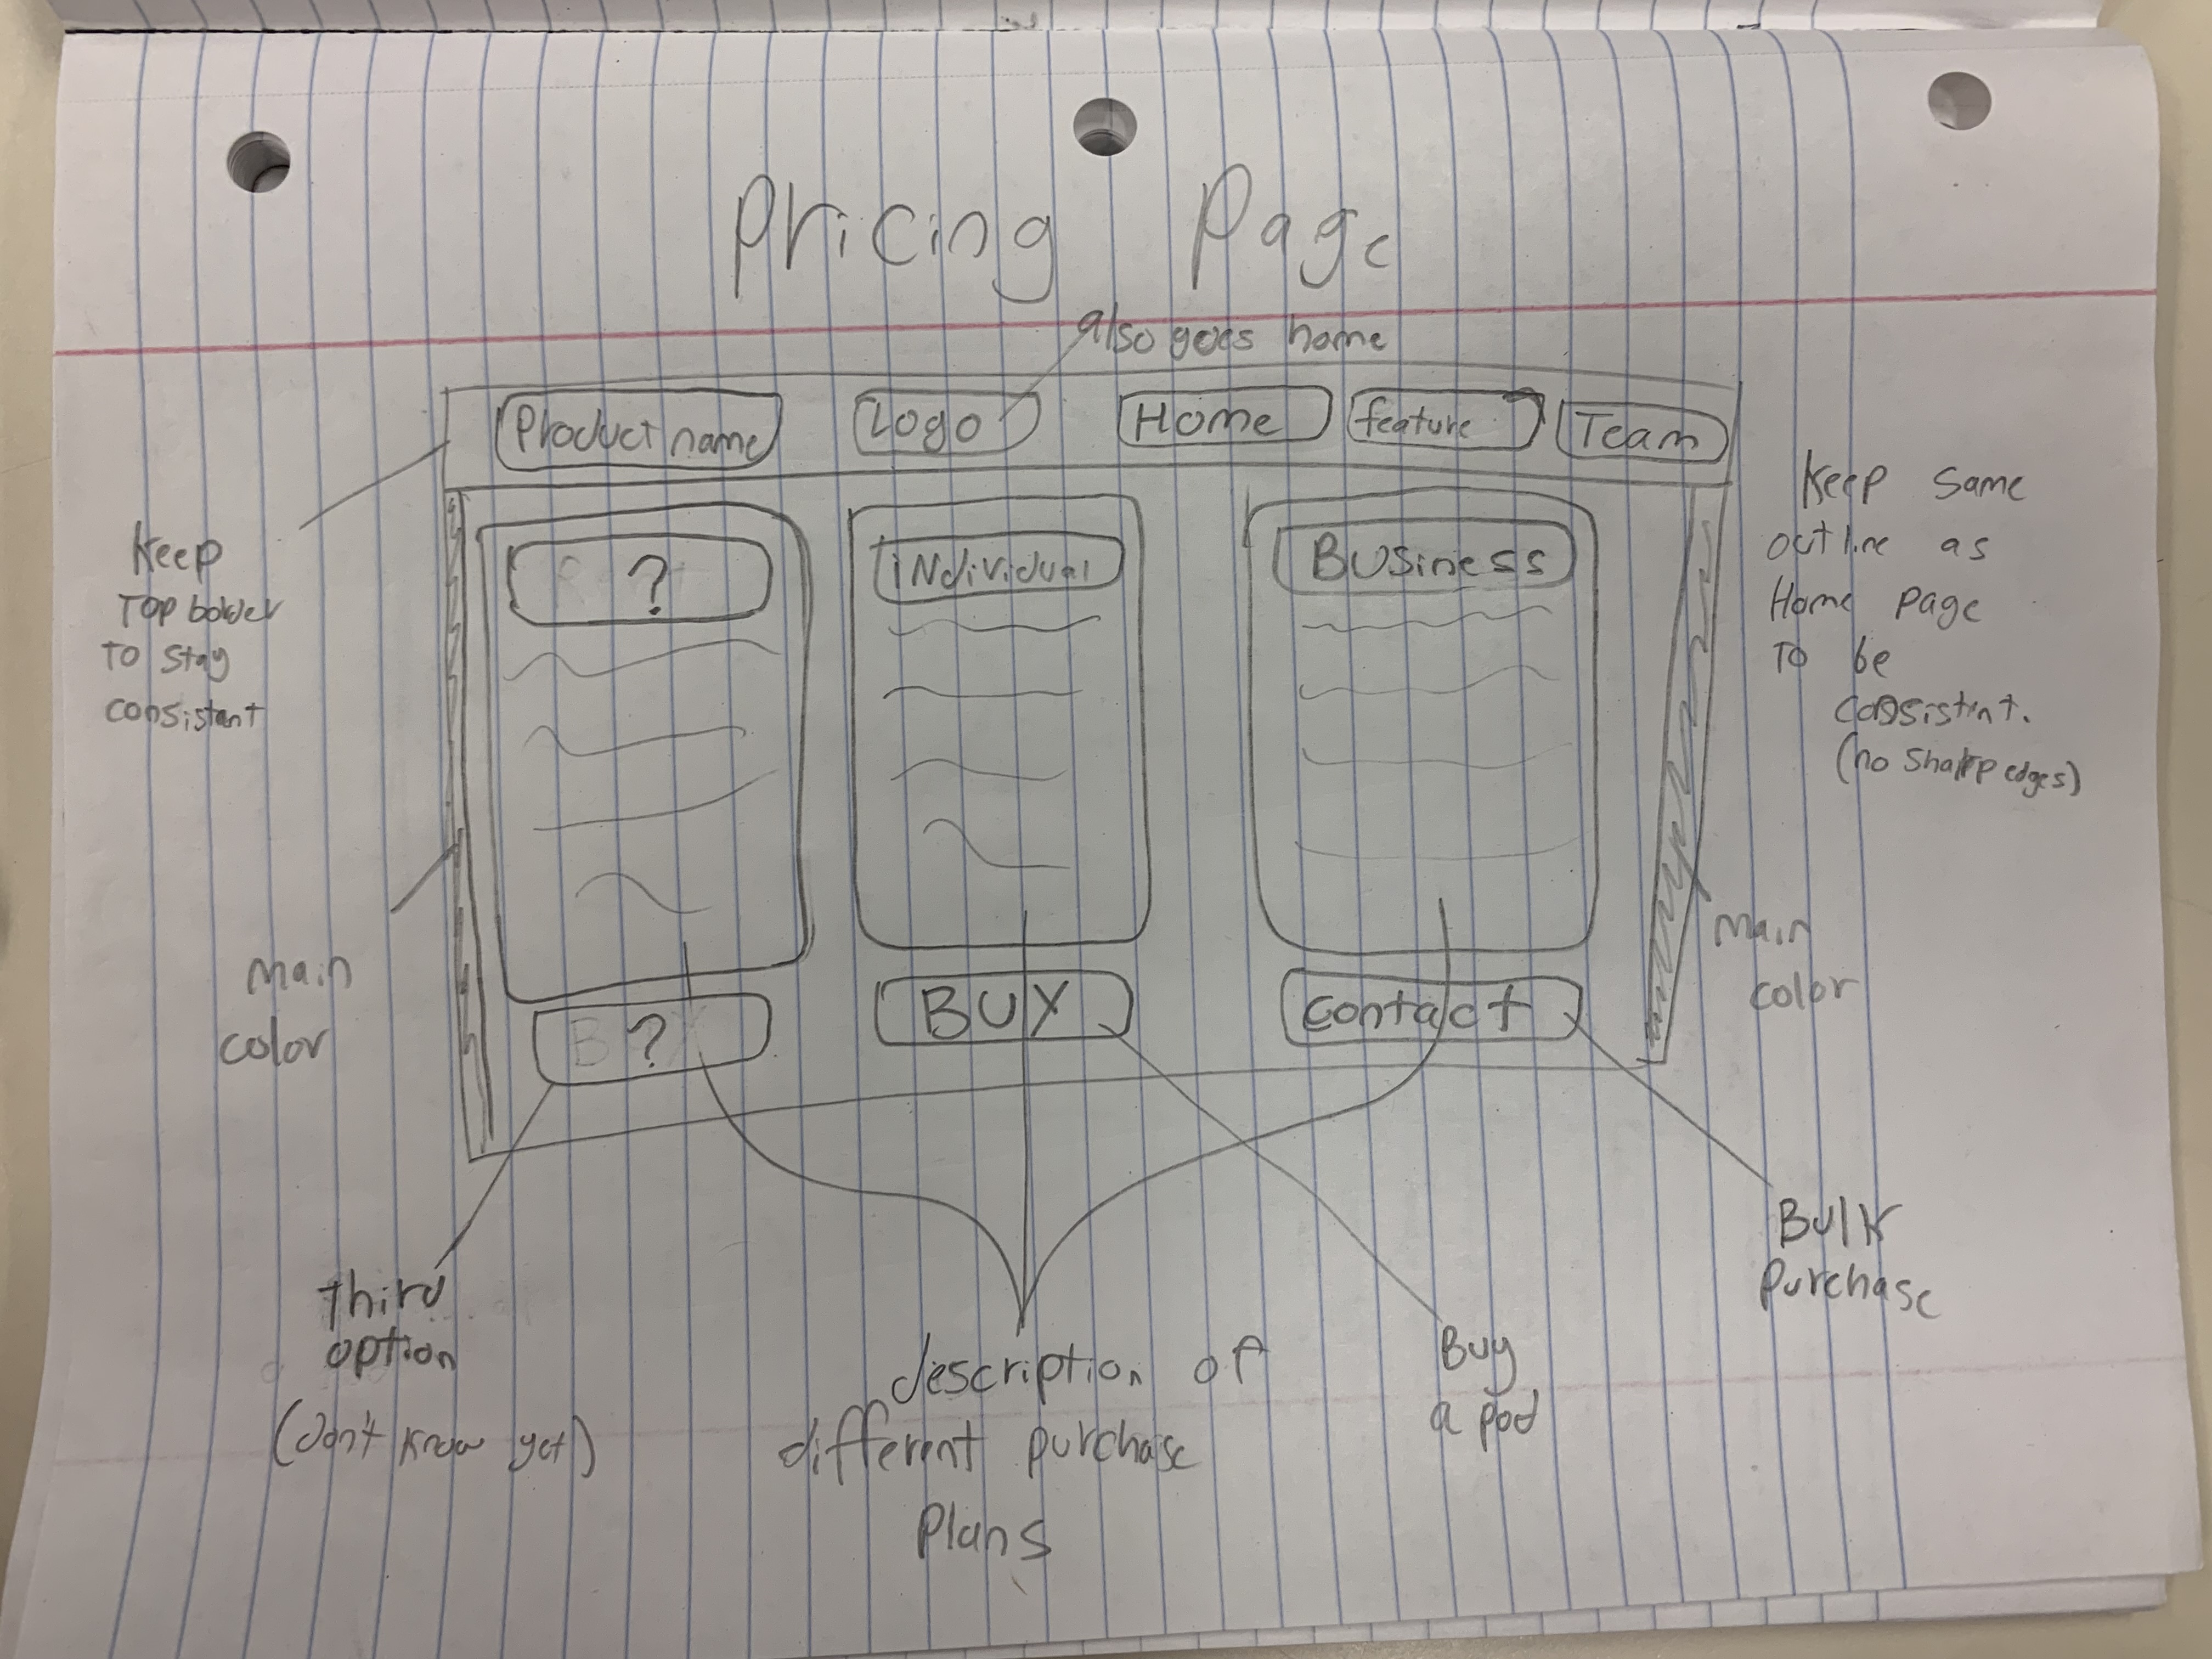 Pricing Page
also goes home
Product name
Logo
Home
feature
Team
Keep
Top border
To stay
consistant
Keep same
outline as
Home page
To be
consistent.
(no sharp edges)
?
individual
Business
main
color
main
color
?
BUY
contact
third
option
(don't know yet)
description of
different purchase
Plans
Buy
a pod
Bulk
purchase